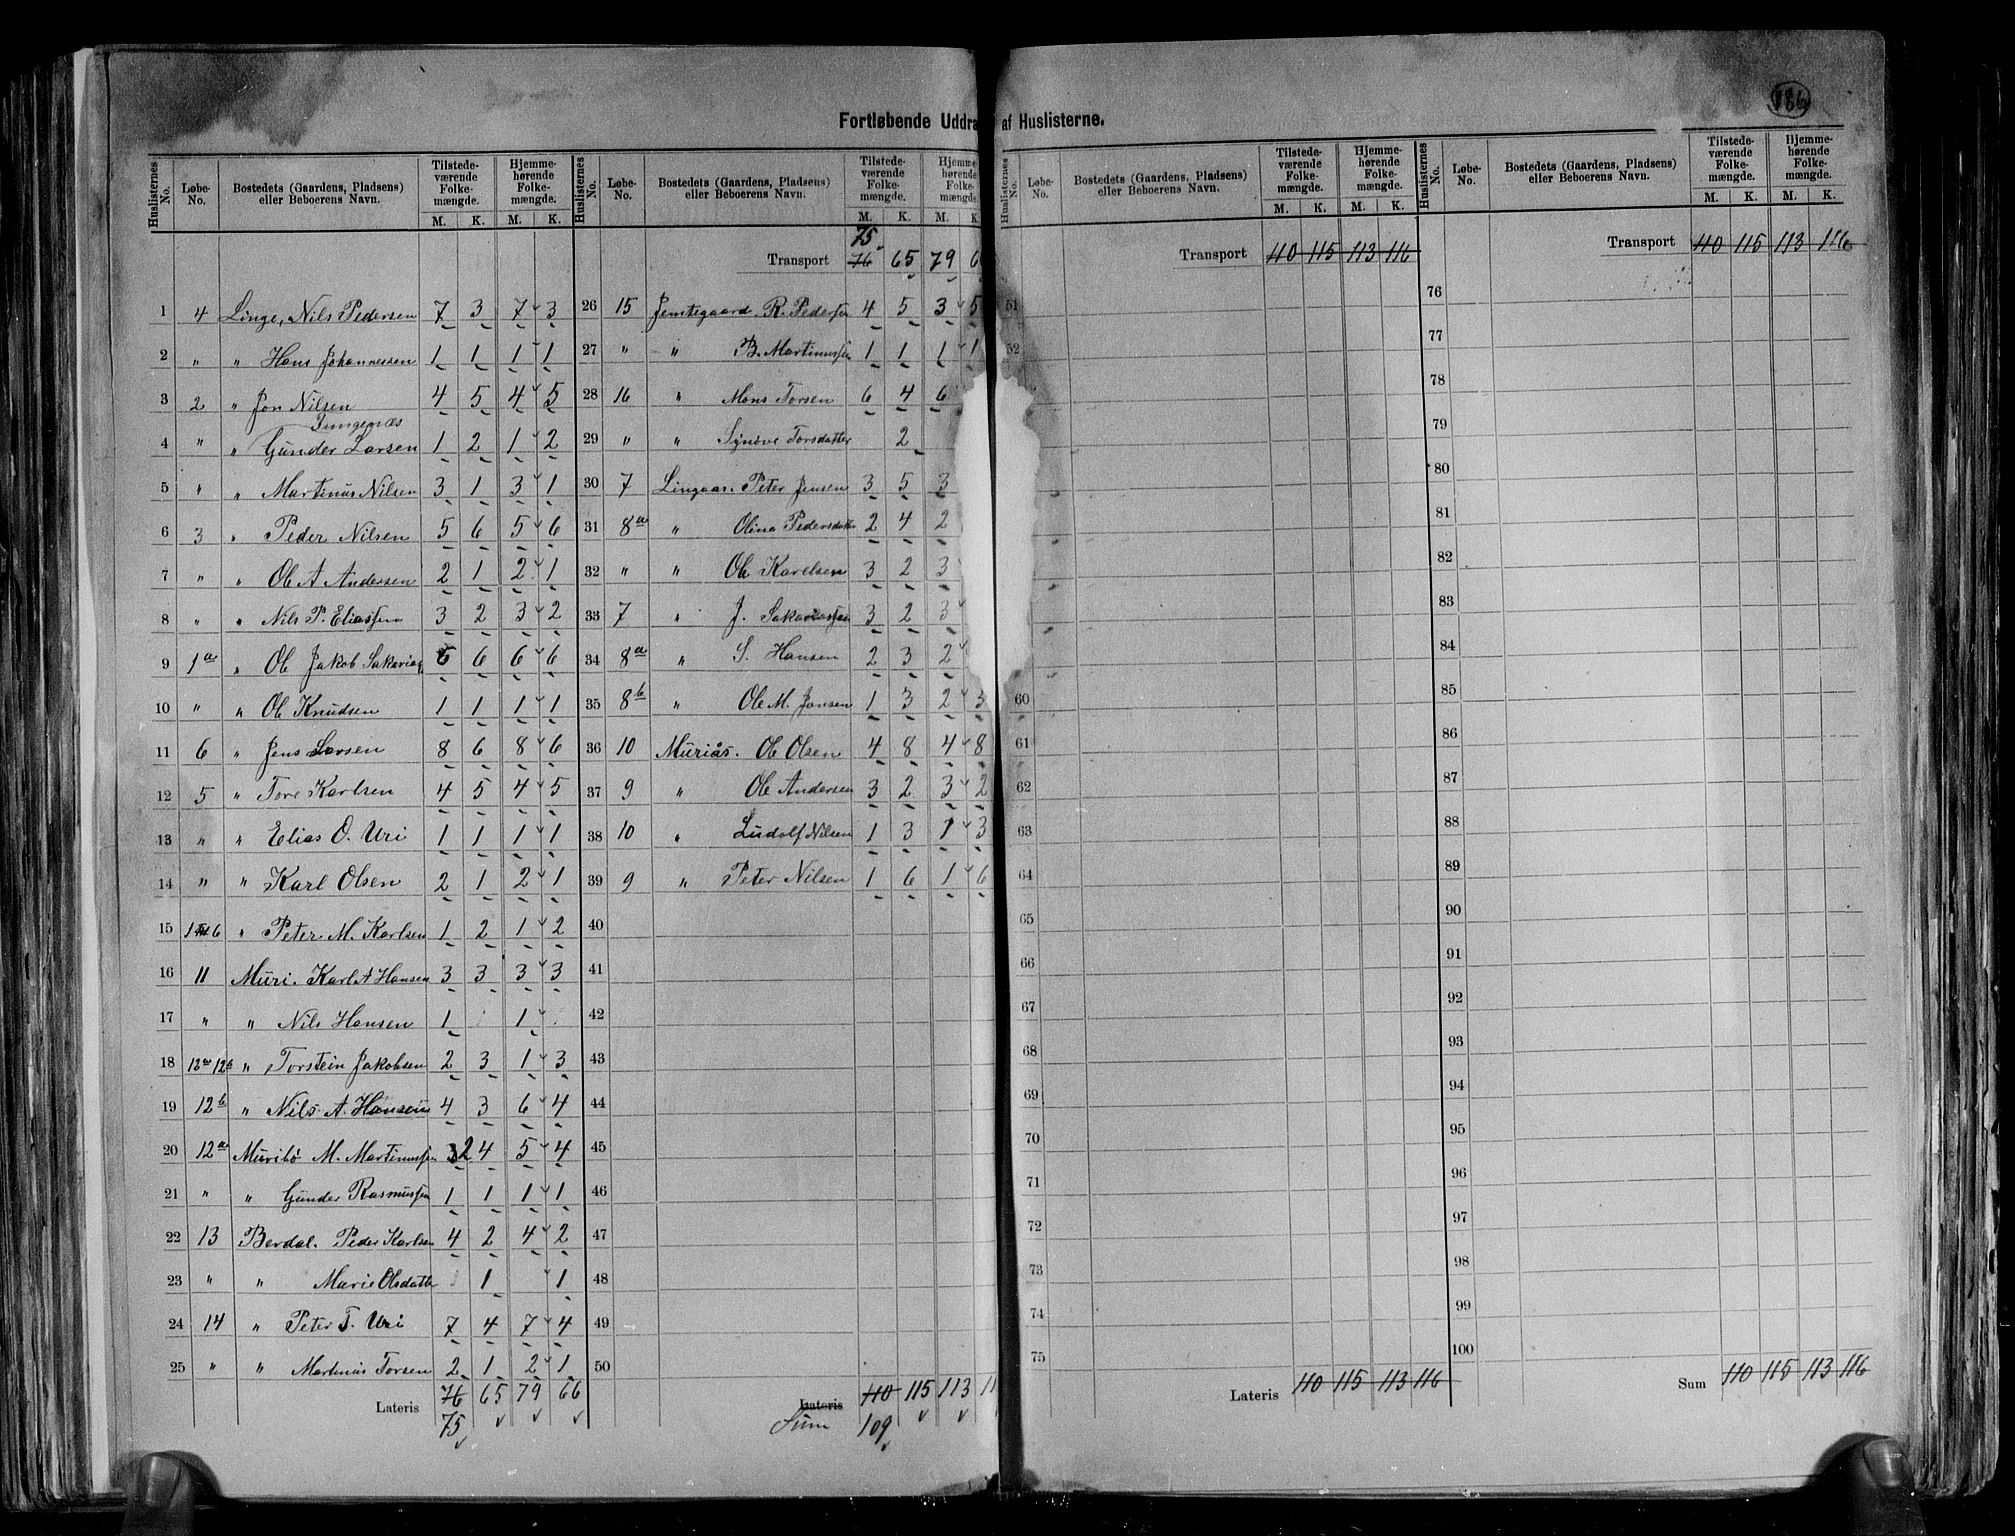 186
Fortløbende Uddra af Huslisterne.
Huslisternes No. Løbe-No. Bostedets (Gaardens, Pladsens) eller Beboerens Navn. Tilstedeværende Folkemængde. M. K. Hjemmehørende Folkemængde. M. K.
1 4 Linge, Nils Pedersen 7 3 7 3
2 " " Hans Johannessen 1 1 1 1
3 2 " Jon Nilsen 4 5 4 5
4 " " Gunder Larsen 1 2 1 2
5 " " Martinus Nilsen 3 1 3 1
6 3 " Peder Nilsen 5 6 5 6
7 " " Ole A Andersen 2 1 2 1
8 " " Nils P. Eliassen 3 2 3 2
9 1a " Ole Jakob Sakarias 6 6 6 6
10 " " Ole Knudsen 1 1 1 1
11 6 " Jens Larsen 8 6 8 6
12 5 " Tore Karlsen 4 5 4 5
13 " " Elias O. Uri 1 1 1 1
14 " " Karl Olsen 2 1 2 1
15 " Peter M. Karlsen 1 2 1 2
16 11 Muri. Karl A Hansen 3 3 3 3
17 " " Nils Hansen 1 1
18 12a 12b " Torstein Jakobsen 2 3 1 3
19 12b " Nils A. Hansen 4 3 6 4
20 12a Muribø M. Martinussen 2 4 5 4
21 " " Gunder Rasmussen 1 1 1 1
22 13 Berdal. Peder Karlsen 4 2 4 2
23 " " Marie Olsdatter 1 1
24 14 " Peter T. Uri 7 4 7 4
25 " " Martinus Torsen 2 1 2 1
Lateris 76 65 79 66
75
Huslisternes No. Løbe-No. Bostedets (Gaardens, Pladsens) eller Beboerens Navn. Tilstedeværende Folkemængde. M. K. Hjemmehørende Folkemængde. M. K.
75
Transport 76 65 79 6
26 15 Jemtegaard. R. Pedersen 4 5 3 5
27 " " B. Martinussen 1 1 1 1
28 16 " Mons Torsen 6 4 6
29 " " Synøve Torsdatter 2
30 7 Lingaas. Peter Jensen 3 5 3
31 8a " Olina Pedersdatter 2 4 2
32 " " Ole Karelsen 3 2 3
33 7 " J. Sakariassen 3 2 3
34 8a " S. Hansen 2 3 2
35 8b " Ole M. Jonsen 1 3 2 3
36 10 Muriås. Ole Olsen 4 8 4 8
37 9 " Ole Andersen 3 2 3 2
38 10 " Ludolf Nilsen 1 3 1 3
39 9 " Peter Nilsen 1 6 1 6
40
41
42
43
44
45
46
47
48
49
50
Lateris 110 115 113 11
Sum 109
Huslisternes No. Løbe-No. Bostedets (Gaardens, Pladsens) eller Beboerens Navn. Tilstedeværende Folkemængde. M. K. Hjemmehørende Folkemængde. M. K.
Transport 110 115 113 116
51
52
60
61
62
63
64
65
66
67
68
69
70
71
72
73
74
75
Lateris 110 115 113 116
Huslisternes No. Løbe-No. Bostedets (Gaardens, Pladsens) eller Beboerens Navn. Tilstedeværende Folkemængde. M. K. Hjemmehørende Folkemængde. M. K.
Transport 110 115 113 116
76
77
78
79
80
81
82
83
84
85
86
87
88
89
90
91
92
93
94
95
96
97
98
99
100
Sum 110 115 113 116